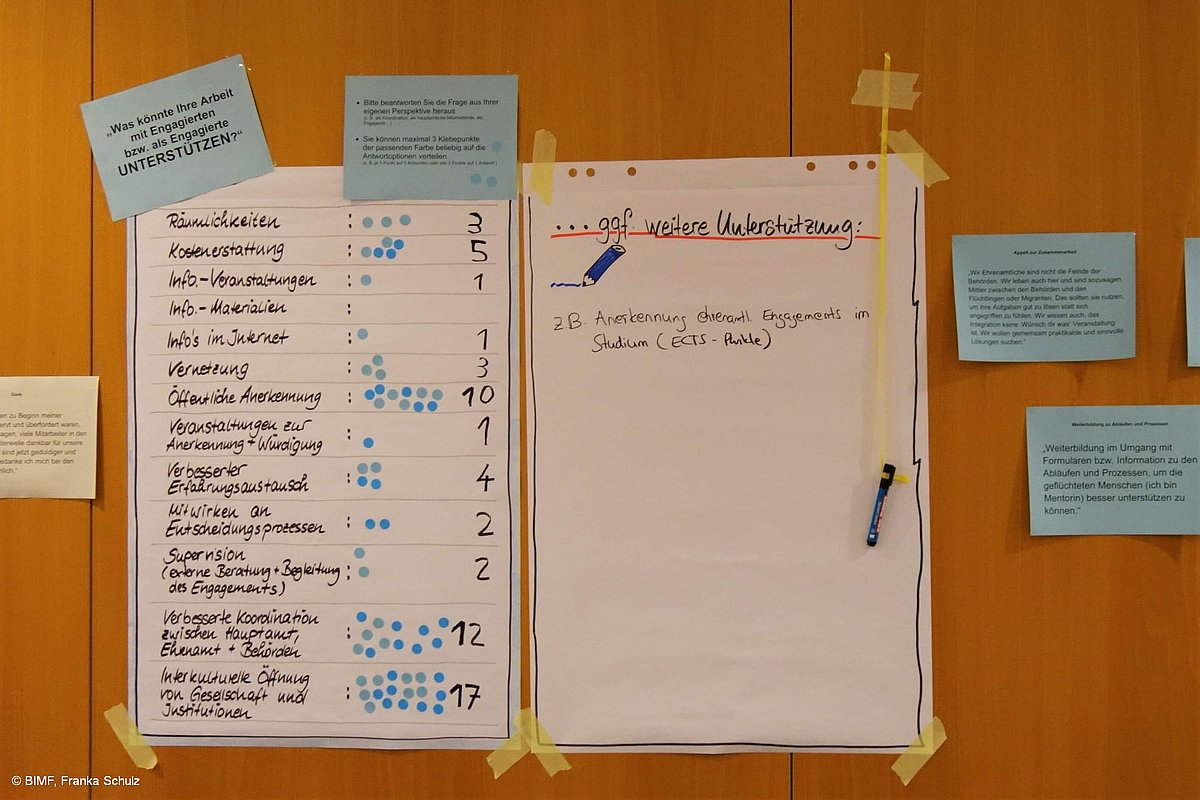 „Was könnte Ihre Arbeit
mit Engagierten
bzw. als Engagierte
UNTERSTÜTZEN?“
• Bitte beantworten Sie die Frage aus Ihrer
eigenen Perspektive heraus
• Sie können maximal 3 Klebepunkte
der passenden Farbe beliebig auf die
Antwortoptionen verteilen.
Räumlichkeiten : 3
Kostenerstattung : 5
Info.-Veranstaltungen : 1
Info.-Materialien :
Info's im Internet : 1
Vernetzung : 3
Öffentliche Anerkennung : 10
Veranstaltungen zur
Anerkennung + Würdigung : 1
Verbesserter
Erfahrungsaustausch : 4
Mitwirken an
Entscheidungsprozessen : 2
Supervision
(externe Beratung + Begleitung : 2
des Engagements)
Verbesserte Koordination
zwischen Hauptamt, : 12
Ehrenamt + Behörden
Interkulturelle Öffnung
von Gesellschaft und : 17
Institutionen
... ggf. weitere Unterstützung:
z.B. Anerkennung ehrenamtl. Engagements im
Studium (ECTS - Punkte)
Dank
en zu Beginn meiner
ervt und überfordert waren,
agen, viele Mitarbeiter in den
tlerweile dankbar für unsere
sind jetzt geduldiger und
edanke ich mich bei den
nlich.“
Appell zur Zusammenarbeit
„Wir Ehrenamtliche sind nicht die Feinde der
Behörden. Wir leben auch hier und sind sozusagen
Mittler zwischen den Behörden und den
Flüchtlingen oder Migranten. Das sollten sie nutzen,
um ihre Aufgaben gut zu lösen statt sich
angegriffen zu fühlen. Wir wissen auch, das
Integration keine ‚Wünsch dir was‘ Veranstaltung
ist. Wir wollen gemeinsam praktikable und sinnvolle
Lösungen suchen.“
Weiterbildung zu Abläufen und Prozessen
„Weiterbildung im Umgang mit
Formularen bzw. Information zu den
Abläufen und Prozessen, um die
geflüchteten Menschen (ich bin
Mentorin) besser unterstützen zu
können.“
© BIMF, Franka Schulz